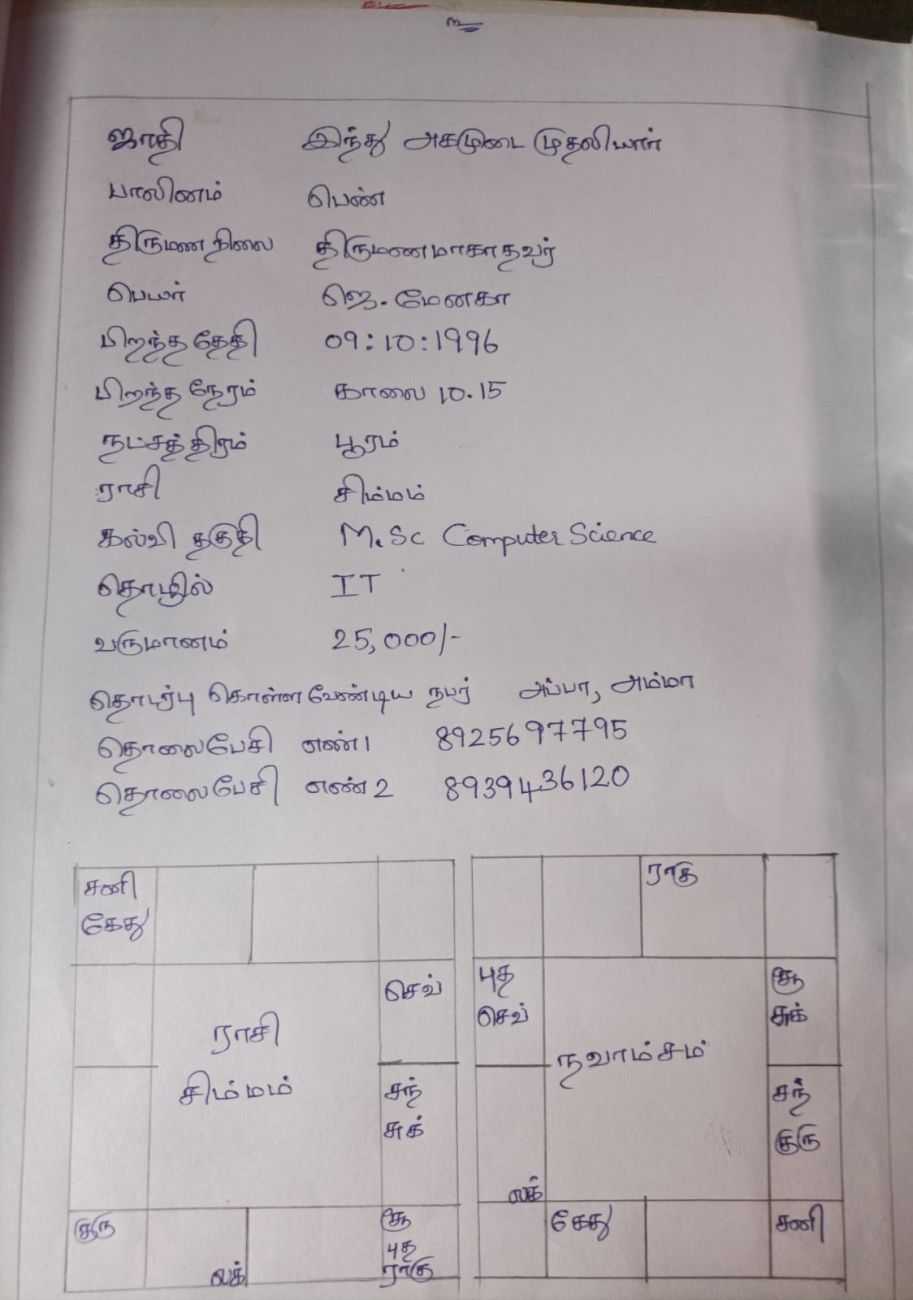 ஜாதி இந்து அகமுடை முதலியார்
பாலினம் பெண்
திருமண நிலை திருமணமாகாதவர்
பெயர் ஜெ. மேனகா
பிறந்த தேதி 09:10:1996
பிறந்த நேரம் காலை 10.15
நட்சத்திரம் பூரம்
ராசி சிம்மம்
கல்வி தகுதி M.Sc Computer Science
தொழில் IT
வருமானம் 25,000/-
தொடர்பு கொள்ள வேண்டிய நபர் அப்பா, அம்மா
தொலைபேசி எண் 1 8925697795
தொலைபேசி எண் 2 8939436120
சனி
கேது
செவ்
ராசி
சிம்மம்
சந்
சுக்
குரு
லக்
சூ
புத
ராகு
ராகு
புத
செவ்
சூ
சுக்
நவாம்சம்
சந்
குரு
லக்
கேது
சனி